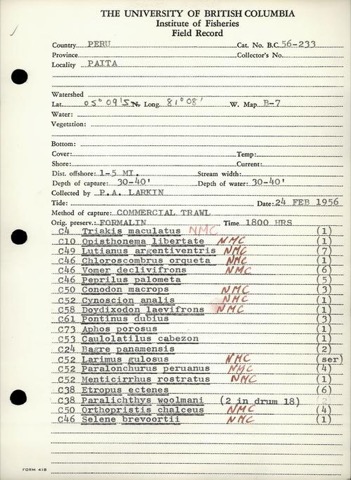 THE UNIVERSITY OF BRITISH COLUMBIA
Institute of Fisheries
Field Record
Country PERU Cat. No. B.C. 56-233
Province Collector's No.
Locality PAITA
Watershed
Lat. 05° 09'S N. Long. 81° 08' W. Map B-7
Water:
Vegetation:
Bottom:
Cover: Temp:
Shore: Current:
Dist. offshore: 1-5 MI. Stream width:
Depth of capture: 30-40' Depth of water: 30-40'
Collected by P.A. LARKIN
Tide: Date 24 FEB 1956
Method of capture: COMMERCIAL TRAWL
Orig. preserv.: FORMALIN Time 1800 HRS
C4 Triakis maculatus NMC (1)
C10 Opisthonema libertate NMC (1)
C49 Lutianus argentiventris NMC (7)
C46 Chloroscombrus orqueta NMC (1)
C46 Vomer declivifrons NMC (6)
C46 Peprilus palometa (5)
C50 Conodon macrops NMC (3)
C52 Cynoscion analis NMC (1)
C58 Doydixodon laevifrons NMC (1)
C61 Pontinus dubius (3)
C73 Aphos porosus (1)
C53 Caulolatilus cabezon (1)
C24 Bagre panamensis (2)
C52 Larimus gulosus NMC (ser)
C52 Paralonchurus peruanus NMC (4)
C52 Menticirrhus rostratus NMC (1)
C38 Etropus ectenes (6)
C38 Paralichthys woolmani (2 in drum 18)
C50 Orthopristis chalceus NMC (4)
C46 Selene brevoortii NMC (1)
FORM 41B